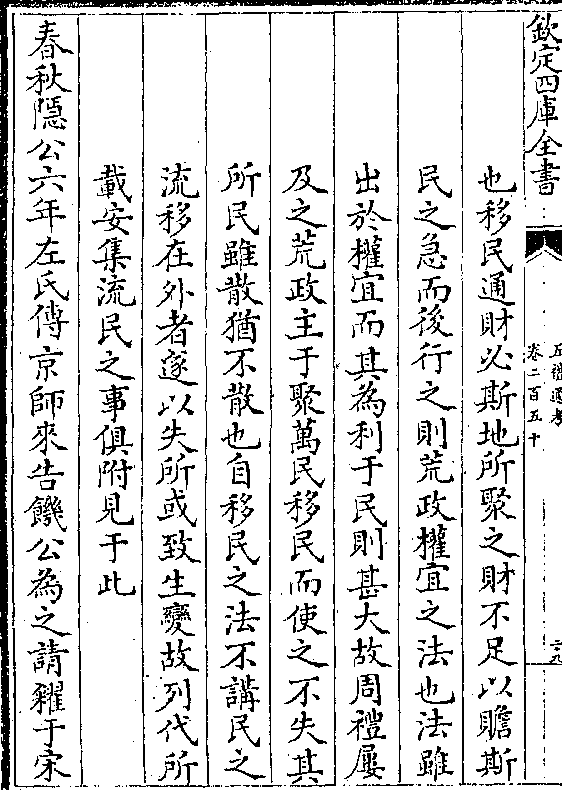 欽定四庫全書
五禮通考
卷二百五十
二九
也移民通財必斯地所聚之財不足以贍斯
民之急而後行之則荒政權宜之法也法雖
出於權宜而其為利于民則甚大故周禮屢
及之荒政主于聚萬民移民而使之不失其
所民雖散猶不散也自移民之法不講民之
流移在外者遂以失所或致生變故列代所
載安集流民之事俱附見于此
春秋隱公六年左氏傳京師來告饑公為之請糴于宋